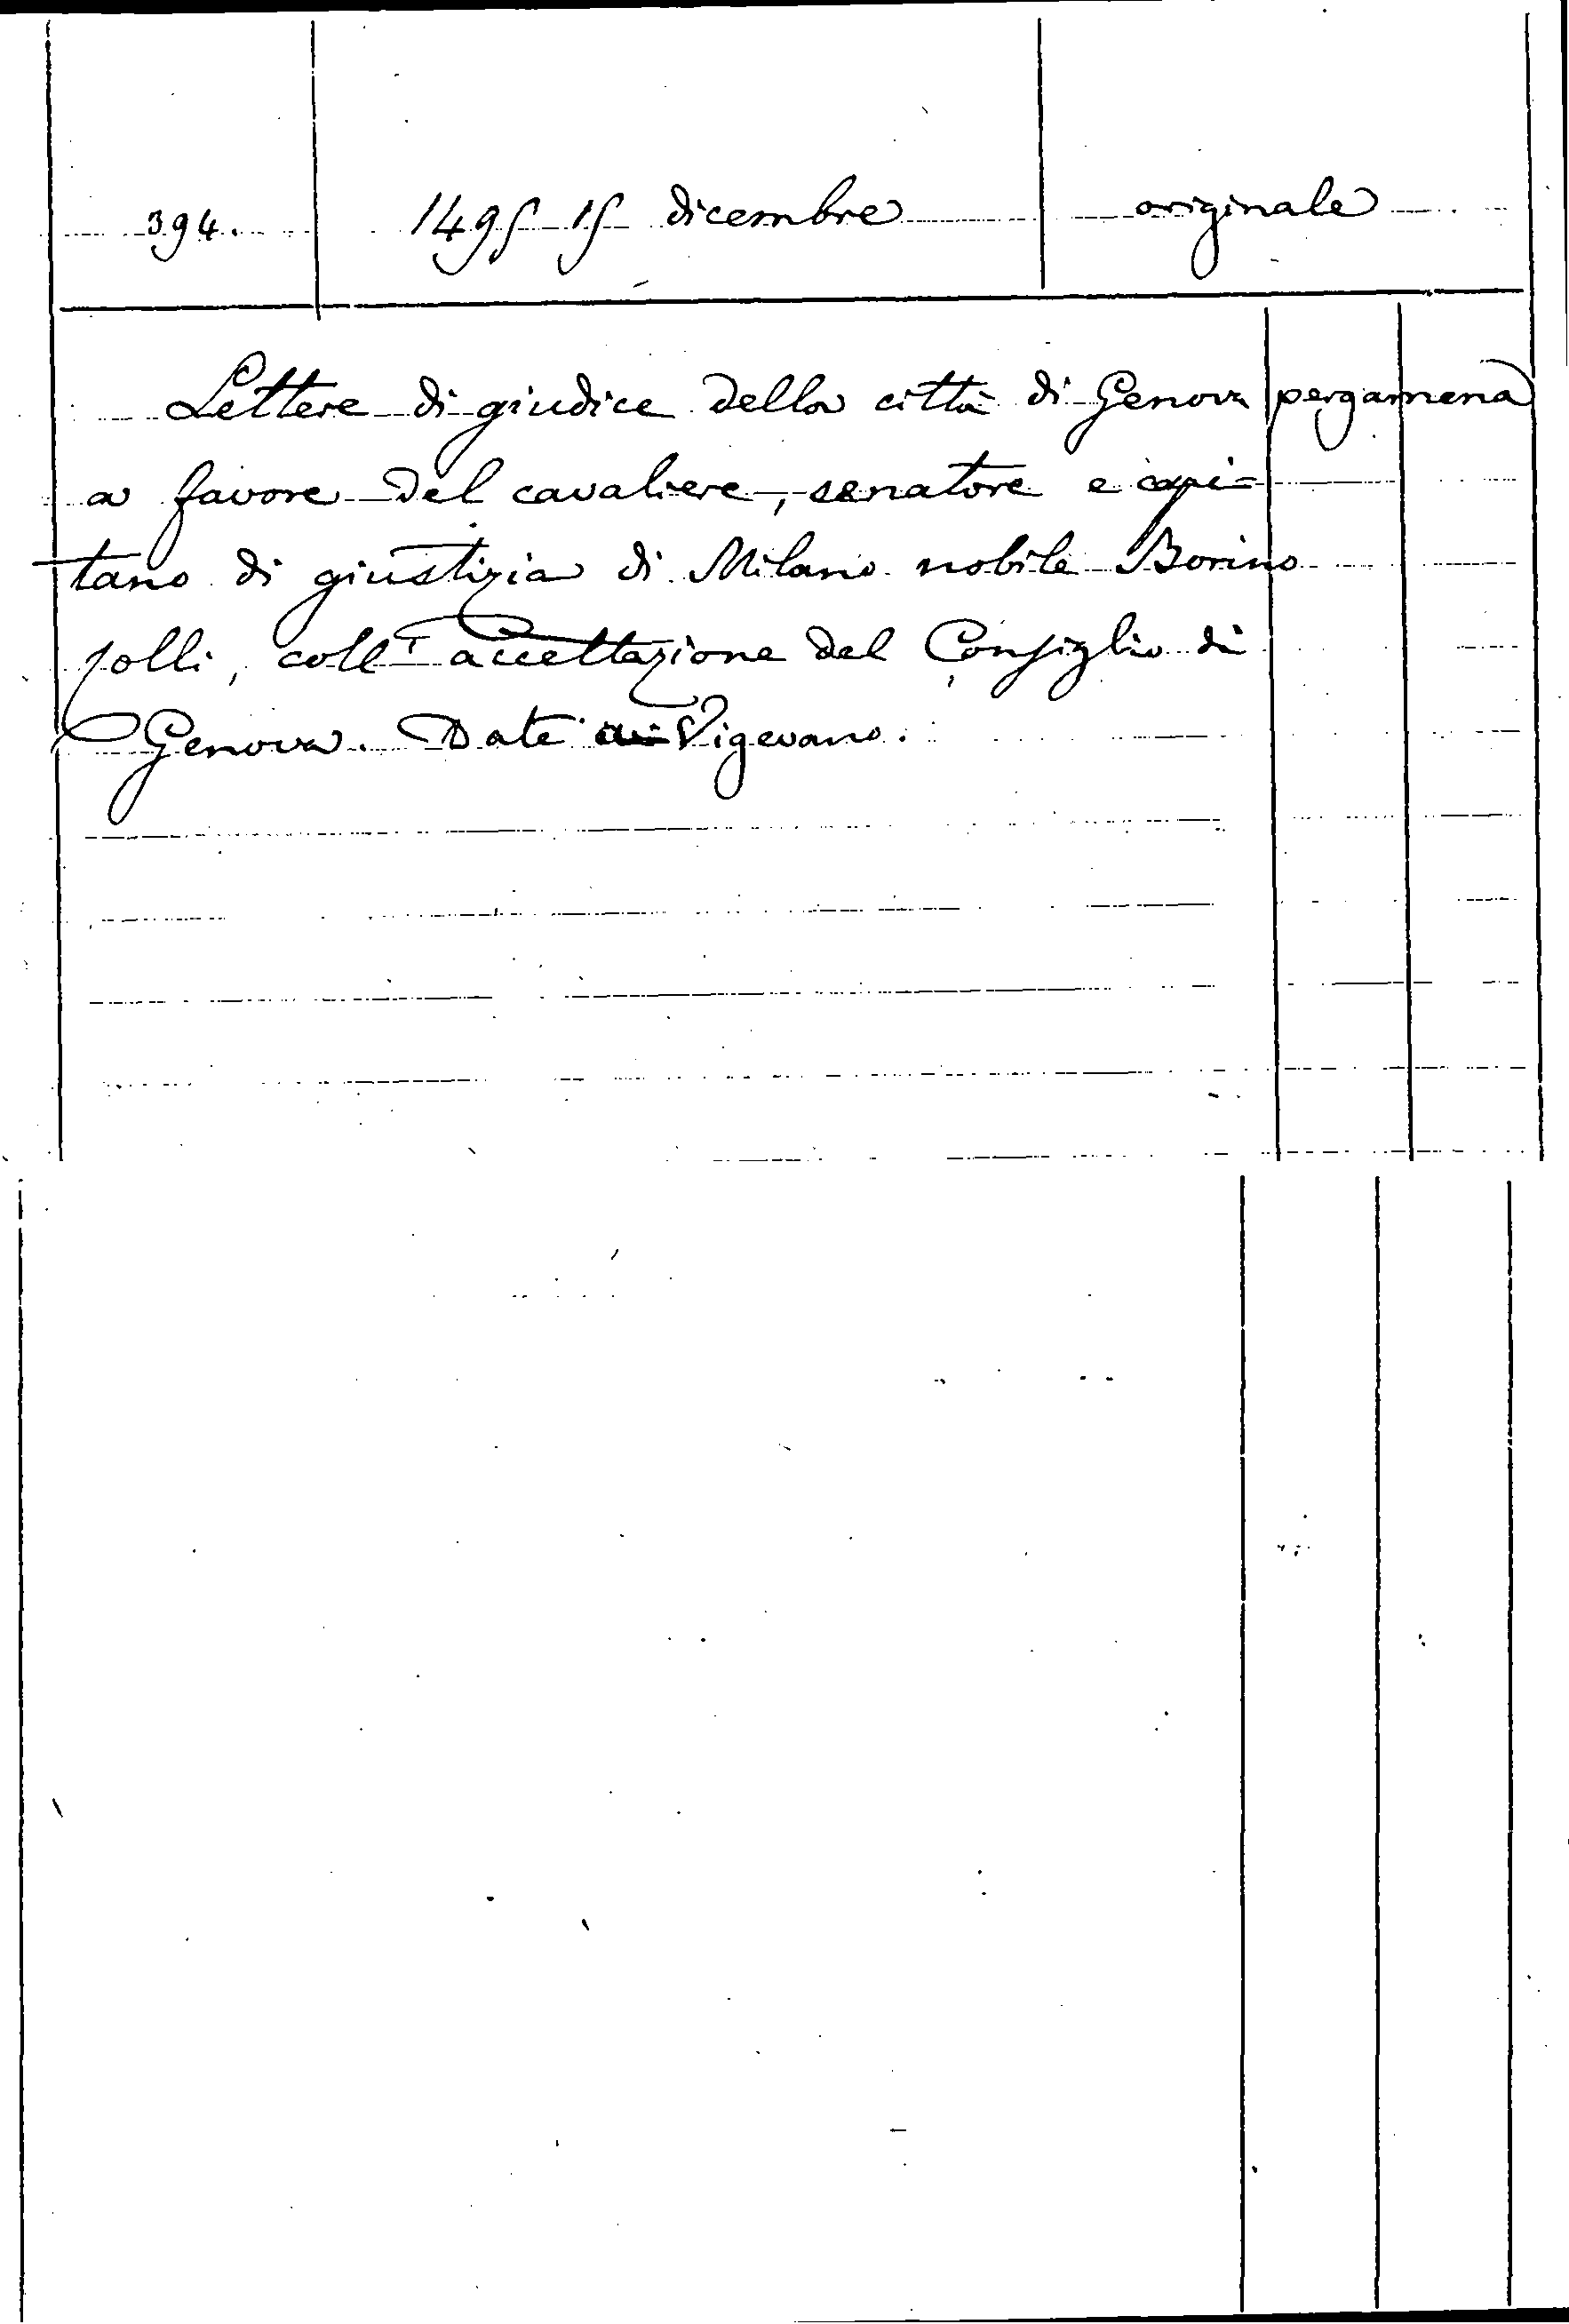 394.
1495 15 dicembre
originale
Lettere di giudice della città di Genova
pergamena
a favore del cavaliere, senatore e capi=
tano di giustizia di Milano nobile Borino
Colli, coll'accettazione del Consiglio di
Genova. Date in Vigevano.